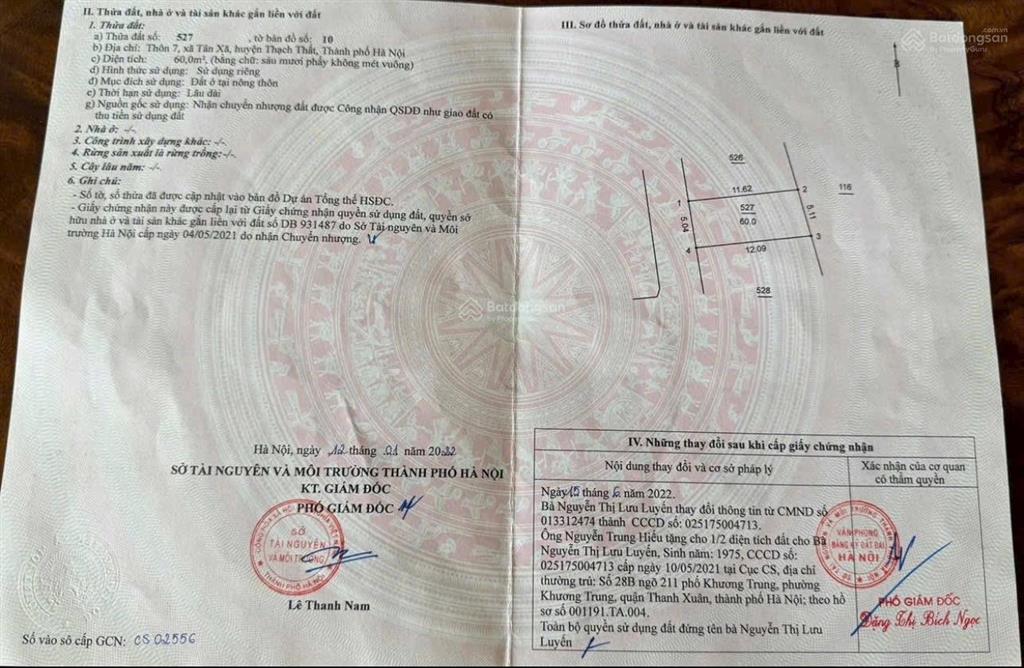 II. Thửa đất, nhà ở và tài sản khác gắn liền với đất
1. Thửa đất:
a) Thửa đất số: 527 , tờ bản đồ số: 10
b) Địa chỉ: Thôn 7, xã Tân Xã, huyện Thạch Thất, Thành phố Hà Nội
c) Diện tích: 60,0m², (bằng chữ: sáu mươi phẩy không mét vuông)
d) Hình thức sử dụng: Sử dụng riêng
đ) Mục đích sử dụng: Đất ở tại nông thôn
e) Thời hạn sử dụng: Lâu dài
g) Nguồn gốc sử dụng: Nhận chuyển nhượng đất được Công nhận QSDĐ như giao đất có
thu tiền sử dụng đất
2. Nhà ở: -/-
3. Công trình xây dựng khác: -/-
4. Rừng sản xuất là rừng trồng:-/-.
5. Cây lâu năm: -/-
6. Ghi chú:
- Số tờ, số thửa đã được cập nhật vào bản đồ Dự án Tổng thể HSĐC.
- Giấy chứng nhận này được cấp lại từ Giấy chứng nhận quyền sử dụng đất, quyền sở
hữu nhà ở và tài sản khác gắn liền với đất số DB 931487 do Sở Tài nguyên và Môi
trường Hà Nội cấp ngày 04/05/2021 do nhận Chuyển nhượng.
Hà Nội, ngày 12 tháng 01 năm 2022
SỞ TÀI NGUYÊN VÀ MÔI TRƯỜNG THÀNH PHỐ HÀ NỘI
KT. GIÁM ĐỐC
PHÓ GIÁM ĐỐC
SỞ
TÀI NGUYÊN
VÀ MÔI TRƯỜNG
THÀNH PHỐ HÀ NỘI
Lê Thanh Nam
Số vào sổ cấp GCN: CS 02556
III. Sơ đồ thửa đất, nhà ở và tài sản khác gắn liền với đất
Batdongsan
.com.vn
by PropertyGuru
B
526
11.62
1
2
116
527
60.0
5.04
5.11
4
12.09
3
528
Batdongsan
by PropertyGuru
IV. Những thay đổi sau khi cấp giấy chứng nhận
Nội dung thay đổi và cơ sở pháp lý
Xác nhận của cơ quan
có thẩm quyền
Ngày 15 tháng 6 năm 2022.
Bà Nguyễn Thị Lưu Luyến thay đổi thông tin từ CMND số
013312474 thành CCCD số: 025175004713.
Ông Nguyễn Trung Hiếu tặng cho 1/2 diện tích đất cho Bà
Nguyễn Thị Lưu Luyến, Sinh năm: 1975, CCCD số:
025175004713 cấp ngày 10/05/2021 tại Cục CS, địa chỉ
thường trú: Số 28B ngõ 211 phố Khương Trung, phường
Khương Trung, quận Thanh Xuân, thành phố Hà Nội; theo hồ
sơ số 001191.TA.004.
Toàn bộ quyền sử dụng đất đứng tên bà Nguyễn Thị Lưu
Luyến
VĂN PHÒNG
ĐĂNG KÝ ĐẤT ĐAI
HÀ NỘI
PHÓ GIÁM ĐỐC
Đặng Thị Bích Ngọc